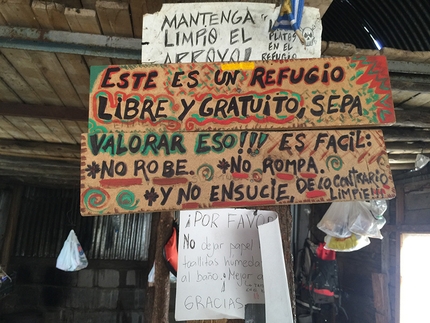 MANTENGA
LIMPIO EL
ARROYO!
PLATOS
EN EL
REFUGIO
ESTE ES UN REFUGIO
LIBRE Y GRATUITO, SEPA
VALORAR ESO!!!! ES FACIL:
*NO ROBE. *NO ROMPA.
*Y NO ENSUCIE, DE LO CONTRARIO
LIMPIE!!!
¡POR FAVO
No dejar papel
toallitas humeda
al baño. Mejor
GRACIAS